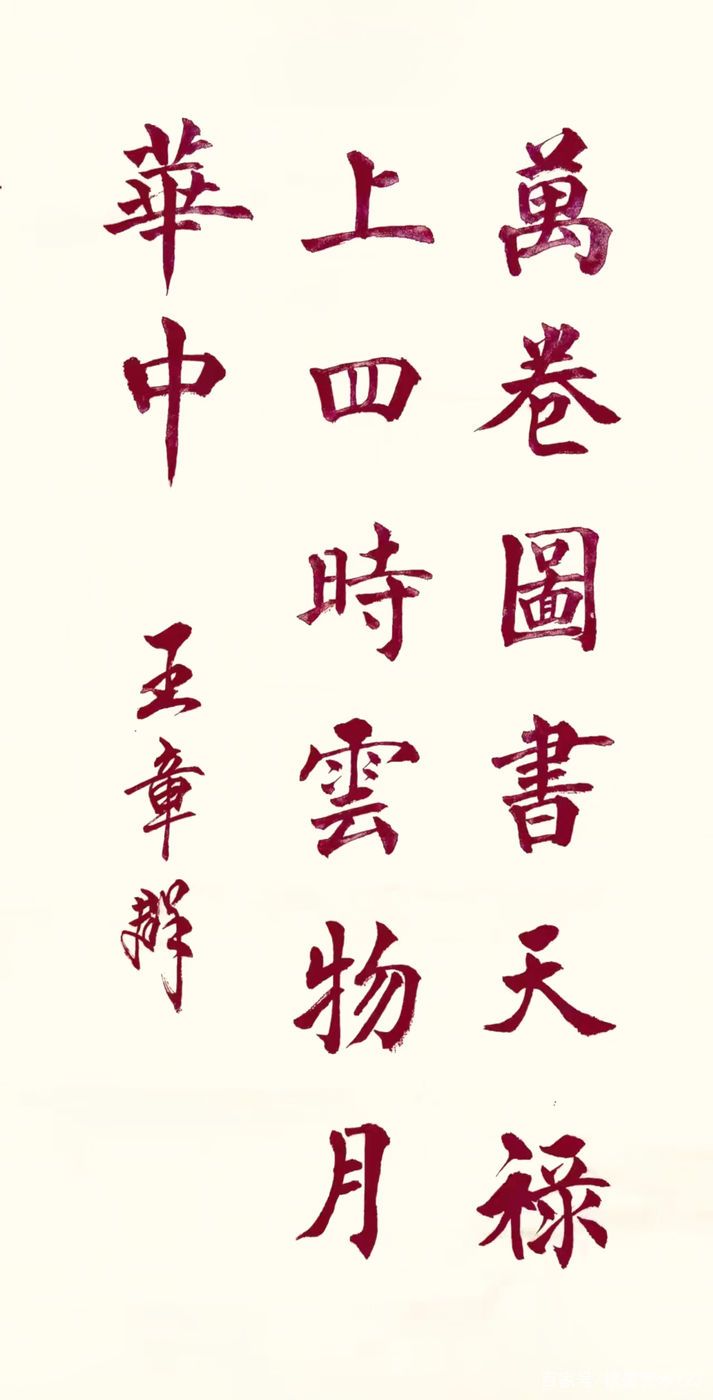 萬卷圖書天祿
上四時雲物月
華中
王章群